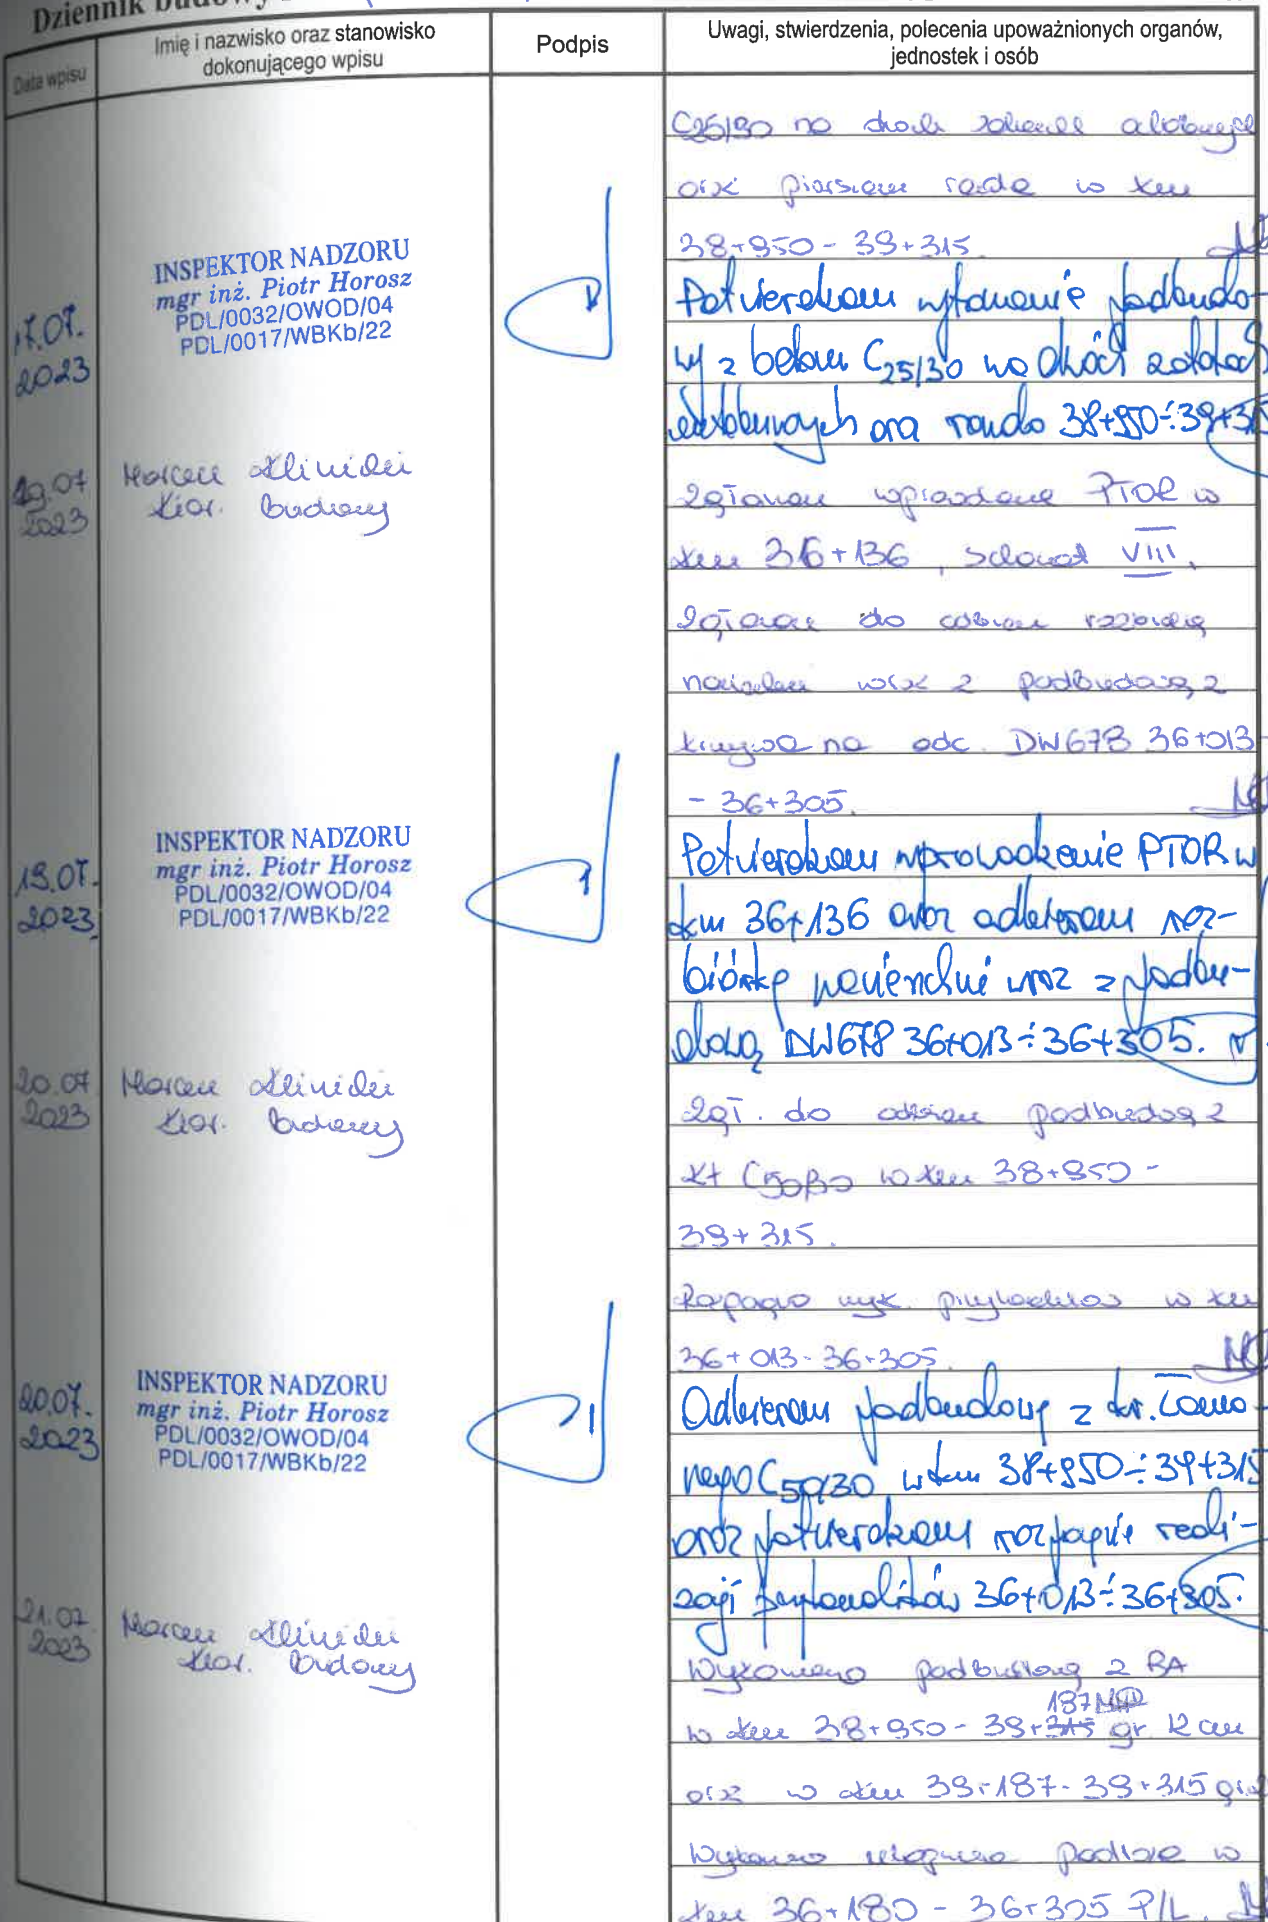 Dziennik budowy
Data wpisu
Imię i nazwisko oraz stanowisko
dokonującego wpisu
Podpis
Uwagi, stwierdzenia, polecenia upoważnionych organów,
jednostek i osób
C25/30 na
oraz pierścieniu ronda w km
38+950 - 39+315.
17.07.
2023
INSPEKTOR NADZORU
mgr inż. Piotr Horosz
PDL/0032/OWOD/04
PDL/0017/WBKb/22
Potwierdzam wykonanie podbudo-
wy z betonu C25/30 na dwóch zatokach
autobusowych oraz rondo 38+950÷39+315
19.07
2023
Marcin
Kier. budowy
Zgłaszam wprowadzenie PTOR w
km 36+136, schemat VIII.
Zgłaszam do odbioru rozbiórkę
nawierzchni wraz z podbudową z
kruszywa na odc. DW678 36+013-
- 36+305.
19.07.
2023
INSPEKTOR NADZORU
mgr inż. Piotr Horosz
PDL/0032/OWOD/04
PDL/0017/WBKb/22
Potwierdzam wprowadzenie PTOR w
km 36+136 oraz odbieram roz-
biórkę nawierzchni wraz z podbu-
dową DW678 36+013÷36+305.
20.07
2023
Marcin
Kier. budowy
Zgł. do odbioru podbudowę z
KŁ C50/30 w km 38+950 -
39+315.
Rozpoczęto wyk. przykanalików w km
36+013-36+305.
20.07.
2023
INSPEKTOR NADZORU
mgr inż. Piotr Horosz
PDL/0032/OWOD/04
PDL/0017/WBKb/22
Odbieram podbudowę z kr. łama-
nego C50/30 w km 38+950÷39+315
oraz potwierdzam rozpoczęcie reali-
zacji przykanalików 36+013÷36+305.
21.07
2023
Marcin
Kier. budowy
Wykonano podbudowę z BA
187
w km 38+950 - 39+315 gr. 12 cm
oraz w km 39+187-39+315 gr.
Wykonano podłoże w
km 36+180 - 36+305 P/L.